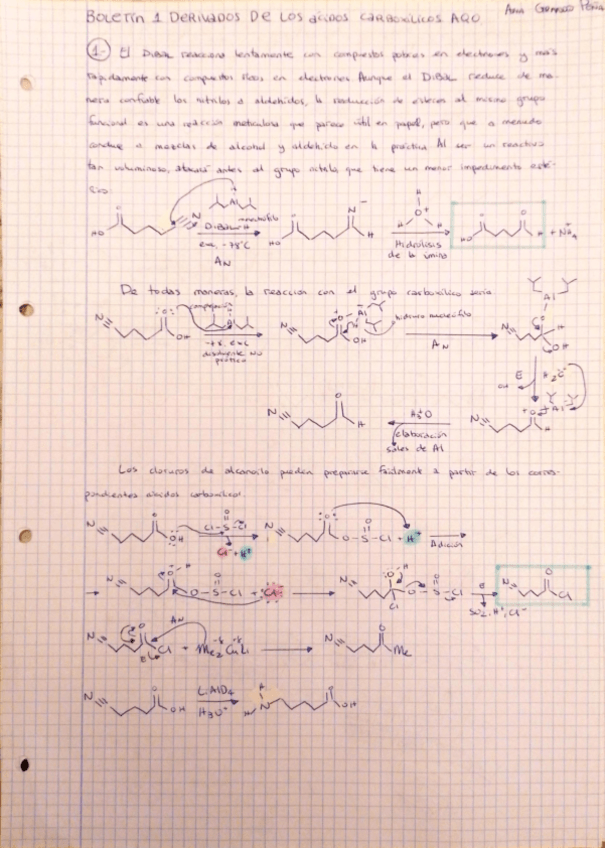 BOLETÍN 1 DERIVADOS DE LOS ÁCIDOS CARBOXÍLICOS AQO
1.- El DIBAL reacciona lentamente con compuestos pobres en electrones y más
rápidamente con compuestos ricos en electrones Aunque el DIBAL reduce de ma-
nera confiable los nitrilos a aldehídos, la reducción de ésteres al mismo grupo
funcional es una reacción meticulosa que parece útil en papel, pero que a menudo
conduce a mezclas de alcohol y aldehído en la práctica Al ser un reactivo
tan voluminoso, antes al grupo que tiene un menor impedimento esté-
rico:
HO N Al
DIBAL-H
exc, -78°C
AN
HO N⁻ H
H O⁺ H H
Hidrólisis
de la imina
HO H + NH₄
De todas maneras, la reacción con el grupo carboxílico sería
N≡ OH Al
-78, exc
disolvente no
prótico
N≡ OH Al
hidruro nucleófilo
AN
N≡ O H OH Al
E
OH
N≡ H Al
H₃O
elaboración
sales de Al
N≡ O H
Los cloruros de alcanoilo pueden prepararse fácilmente a partir de los corres-
pondientes ácidos carboxílicos
N≡ OH Cl-S-Cl
Cl⁻+H⁺
N≡ O-S-Cl + H⁺
Adición
N≡ O-S-Cl + Cl⁻
N≡ Cl O-S-Cl
E
SO₂, H⁺, Cl⁻
N≡ O Cl
N≡ Cl + Me₂CuLi
AN
E
N≡ O Me
N≡ O OH
H₃O⁺
H N H O OH